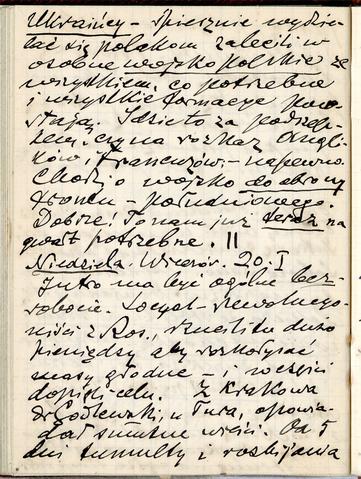 Ukraińcy – śpiesznie wydzie-
lać się polakom zalecili w
osobne wojsko polskie ze
wszystkiem, co potrzebne
i wszystkie formacye pow-
stają. Idzie to za podszep-
tem, czy na rozkaz Angli-
ków, Francuzów, – napewno.
Chodzi o wojsko do obrony
frontu – południowego.
Dobrze! To nam już teraz na
gwałt potrzebne. ||
Niedziela. Wieczór. 20. I
Jutro ma być ogólne bez-
robocie. Socyal-rewolucyo-
niści z Ros., dużo
pieniędzy aby rozkołysać
masy głodne – i wcześci
dopięli celu. Z Krakowa
Dr Godlewski, u Tura, opowia-
dał smutne wieści. Od 5
dni tumulty i rozbijania